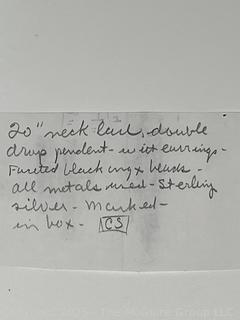 20" neck lace, double
drop pendent - with earrings -
Faceted black onyx beads -
all metals used - Sterling
silver - Marked -
in box - CS